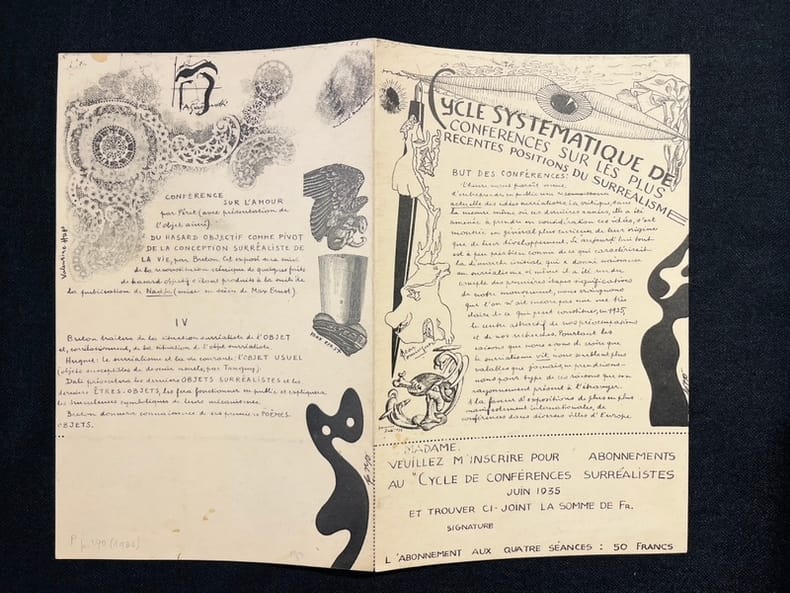 CONFERENCE
SUR L'AMOUR
par Péret (avec présentation de
l'objet aimé)
DU HASARD OBJECTIF COMME PIVOT
DE LA CONCEPTION SURRÉALISTE DE
LA VIE, par Breton. Cet exposé sera suivi
de la reconstitution scénique de quelques faits
de hasard objectif s'étant produits à la suite de
la publication de Nadja (mise en scène de Max Ernst).
Valentine Hugo
MAX ERNST
IV
Breton traitera de la situation surréaliste de l'OBJET
et, corrélativement, de la situation de l'objet surréaliste.
Hugnet: le surréalisme et la vie courante: l'OBJET USUEL
(objets susceptibles de devenir usuels, par Tanguy).
Dali présentera les derniers OBJETS SURRÉALISTES et les
derniers ÊTRES-OBJETS, les fera fonctionner en public et expliquera
les succulences symboliques de leurs mécanismes.
Breton donnera connaissance de ses premiers POÈMES-
OBJETS.
CYCLE SYSTEMATIQUE DE
CONFERENCES SUR LES PLUS
RECENTES POSITIONS DU SURREALISME
BUT DES CONFÉRENCES:
L'heure nous paraît venue
d'entreprendre en public une reconnaissance
actuelle des idées surréalistes. La critique, dans
la mesure même où ces dernières années, elle a été
amenée à prendre en considération ces idées, s'est
montrée en général plus curieuse de leur origine
que de leur développement. Si aujourd'hui tout
est à peu près bien connu de ce qui caractérisait
la démarche initiale qui a donné naissance
au surréalisme et même s'il a été rendu
compte des premières étapes significatives
de notre mouvement, nous craignons
que l'on n'ait encore pas une vue très
claire de ce qui peut constituer, en 1935,
le centre attractif de nos préoccupations
et de nos recherches. Pourtant les
raisons que nous avons de croire que
le surréalisme vit nous semblent plus
valables que jamais, en prendrions-
nous pour type de ces raisons que son
rayonnement présent à l'étranger.
A la faveur d'expositions de plus en plus
manifestement internationales, de
conférences dans diverses villes d'Europe
MADAME,
VEUILLEZ M'INSCRIRE POUR ABONNEMENTS
AU "CYCLE DE CONFÉRENCES SURRÉALISTES
JUIN 1935
ET TROUVER CI-JOINT LA SOMME DE FR.
SIGNATURE
L'ABONNEMENT AUX QUATRE SÉANCES: 50 FRANCS